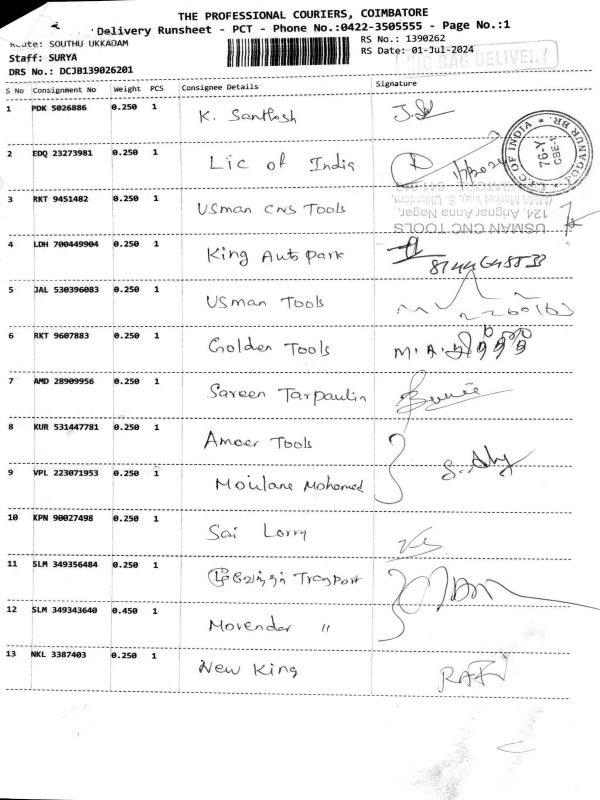 THE PROFESSIONAL COURIERS, COIMBATORE
Delivery Runsheet - PCT - Phone No.:0422-3505555 - Page No.:1
Route: SOUTHU UKKADAM
RS No.: 1390262
Staff: SURYA
RS Date: 01-Jul-2024
DRS No.: DCJB139026201
S No Consignment No Weight PCS Consignee Details Signature
1 PDK 5026886 0.250 1 K. Santhosh
2 EDQ 23273981 0.250 1 Lic of India
L.I.C OF INDIA
76-Y
CBE-1
3 RKT 9451482 0.250 1 Usman CNS Tools
USMAN CNC TOOLS
124, Arignar Anna Nagar,
4 LDH 700449904 0.250 1 King Auto park
5 JAL 530396083 0.250 1 Usman Tools
6 RKT 9607883 0.250 1 Golden Tools
7 AMD 28909956 0.250 1 Sareen Tarpaulin
8 KUR 531447781 0.250 1 Ameer Tools
9 VPL 223071953 0.250 1 Moulana Mohamed
10 KPN 90027498 0.250 1 Sai Lorry
11 SLM 349356484 0.250 1 மூவேந்தர் Tresport
12 SLM 349343640 0.450 1 Movendar "
13 NKL 3387403 0.250 1 New King